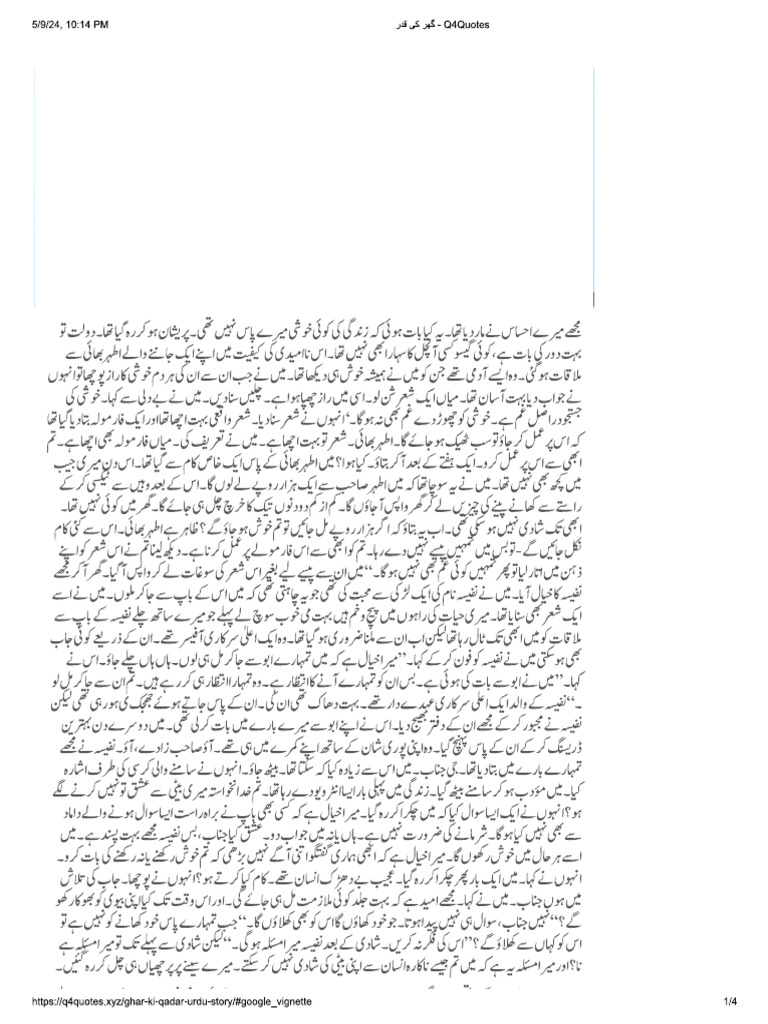 5/9/24, 10:14 PM
گھر کی قدر - Q4Quotes
مجھے میرے احساس نے مار دیا تھا۔ یہ کیا بات ہوئی کہ زندگی کی کوئی خوشی میرے پاس نہیں تھی۔ پریشان ہو کر رہ گیا تھا۔ دولت تو
بہت دور کی بات ہے، کوئی گیسو کسی آنچل کا سہارا بھی نہیں تھا۔ اس ناامیدی کی کیفیت میں اپنے ایک جاننے والے اطہر بھائی سے
ملاقات ہو گئی۔ وہ ایسے آدمی تھے جن کو میں نے ہمیشہ خوش ہی دیکھا تھا۔ میں نے جب ان سے ان کی ہر دم خوشی کا راز پوچھا تو انہوں
نے جواب دیا بہت آسان تھا۔ میاں ایک شعر سن لو۔ اسی میں راز چھپا ہوا ہے۔ چلیں سنا دیں۔ میں نے بے دلی سے کہا۔ خوشی کی
جستجو دراصل غم ہے۔ خوشی کو چھوڑ دے غم بھی نہ ہو گا۔ ‘انہوں نے شعر سنا دیا۔ شعر واقعی بہت اچھا تھا اور ایک فارمولہ بتا دیا گیا تھا
کہ اس پر عمل کر جاؤ تو سب ٹھیک ہو جائے گا۔ اطہر بھائی۔ شعر تو بہت اچھا ہے۔ میں نے تعریف کی۔ میاں فارمولہ بھی اچھا ہے۔ تم
ابھی سے اس پر عمل کرو۔ ایک ہفتے کے بعد آ کر بتاؤ۔ کیا ہوا؟ میں اطہر بھائی کے پاس ایک خاص کام سے گیا تھا۔ اس دن میری جیب
میں کچھ بھی نہیں تھا۔ میں نے یہ سوچا تھا کہ میں اطہر صاحب سے ایک ہزار روپے لے لوں گا۔ اس کے بعد وہیں سے ٹیکسی کر کے
راستے سے کھانے پینے کی چیزیں لے کر گھر واپس آ جاؤں گا۔ کم از کم دو دنوں تیک کا خرچ چل ہی جائے گا۔ گھر میں کوئی نہیں تھا۔
ابھی تک شادی نہیں ہو سکی تھی۔ اب یہ بتاؤ کہ اگر ہزار روپے مل جائیں تو تم خوش ہو جاؤ گے؟ ظاہر ہے اطہر بھائی۔ اس سے کئی کام
نکل جائیں گے۔ تو بس میں تمہیں پیسے نہیں دے رہا۔ تم کو ابھی سے اس فارمولے پر عمل کرنا ہے۔ دیکھ لینا تم نے اس شعر کو اپنے
ذہن میں اتار لیا تو پھر تمہیں کوئی غم بھی نہیں ہو گا۔“ میں ان سے پیسے لیے بغیر اس شعر کی سوغات لے کر واپس آ گیا۔ گھر آ کر مجھے
نفیسہ کا خیال آیا۔ میں نے نفیسہ نام کی ایک لڑکی سے محبت کی تھی جو یہ چاہتی تھی کہ میں اس کے باپ سے جا کر ملوں۔ میں نے اسے
ایک شعر بھی سنایا تھا۔ میری حیات کی راہوں میں پیچ و خم ہیں بہت می خوب سوچ لے پہلے جو میرے ساتھ چلے نفیسہ کے باپ سے
ملاقات کو میں ابھی تک ٹال رہا تھا لیکن اب ان سے ملنا ضروری ہو گیا تھا۔ وہ ایک اعلیٰ سرکاری آفیسر تھے۔ ان کے ذریعے کوئی جاب
بھی ہو سکتی میں نے نفیسہ کو فون کر کے کہا۔ ”میرا خیال ہے کہ میں تمہارے ابو سے جا کر مل ہی لوں۔ ہاں ہاں چلے جاؤ۔ اس نے
کہا۔ ”میں نے ابو سے بات کی ہوئی ہے۔ بس ان کو تمہارے آنے کا انتظار ہے۔ وہ تمہارا انتظار ہی کر رہے ہیں۔ تم ان سے جا کر مل لو
۔“نفیسہ کے والد ایک اعلی سرکاری عہدے دار تھے۔ بہت دھاک تھی ان کی۔ ان کے پاس جاتے ہوئے جھجک کی ہو رہی تھی لیکن
نفیسہ نے مجبور کر کے مجھے ان کے دفتر بھیج دیا۔ اس نے اپنے ابو سے میرے بارے میں بات کر لی تھی۔ میں دوسرے دن بہترین
ڈریسنگ کر کے ان کے پاس پہنچ گیا۔ وہ اپنی پوری شان کے ساتھ اپنے کمرے میں ہی تھے۔ آؤ صاحب زادے، آؤ۔ نفیسہ نے مجھے
تمہارے بارے میں بتا دیا تھا۔ جی جناب۔ میں اس سے زیادہ کیا کہہ سکتا تھا۔ بیٹھ جاؤ۔ انہوں نے سامنے والی کرسی کی طرف اشارہ
کیا۔ میں مؤدب ہو کر سامنے بیٹھ گیا۔ زندگی میں پہلی بار ایسا انٹرویو دے رہا تھا۔ تم خدانخواستہ میری بیٹی سے عشق تو نہیں کرنے لگے
ہو؟ انہوں نے ایک ایسا سوال کیا کہ میں چکرا کر رہ گیا۔ میرا خیال ہے کہ کسی بھی باپ نے براہ راست ایسا سوال ہونے والے داماد
سے بھی نہیں کیا ہو گا۔ شرمانے کی ضرورت نہیں ہے۔ ہاں یا نہ میں جواب دو۔ عشق کیا جناب، بس نفیسہ مجھے بہت پسند ہے۔ میں
اسے ہر حال میں خوش رکھوں گا۔ میرا خیال ہے کہ ابھی ہماری گفتگو اتنی آگے نہیں بڑھی کہ تم خوش رکھنے یا نہ رکھنے کی بات کرو۔
انہوں نے کہا۔ میں ایک بار پھر چکرا کر رہ گیا۔ عجیب بے دھڑک انسان تھے۔ کام کیا کرتے ہو؟ انہوں نے پوچھا۔ جاب کی تلاش
میں ہوں جناب۔ میں نے کہا۔ مجھے امید ہے کہ بہت جلد کوئی ملازمت مل ہی جائے گی۔ اور اس وقت تک کیا اپنی بیوی کو بھوکا رکھو
گے؟“ ”نہیں جناب، سوال ہی نہیں پیدا ہوتا۔ جو خود کھاؤں گا اس کو بھی کھلاؤں گا۔“ جب تمہارے پاس خود کھانے کو نہیں ہے تو
اس کو کہاں سے کھلاؤ گے؟“ ”اس کی فکر نہ کریں۔ شادی کے بعد نفیسہ میرا مسئلہ ہو گی۔“ ”لیکن شادی سے پہلے تک تو میرا مسئلہ ہے
نا؟ اور میرا مسئلہ یہ ہے کہ میں تم جیسے ناکارہ انسان سے اپنی بیٹی کی شادی نہیں کر سکتے۔ میرے سینے پر پرچھیاں ہی چل کر رہ گئیں۔
https://q4quotes.xyz/ghar-ki-qadar-urdu-story/#google_vignette
1/4